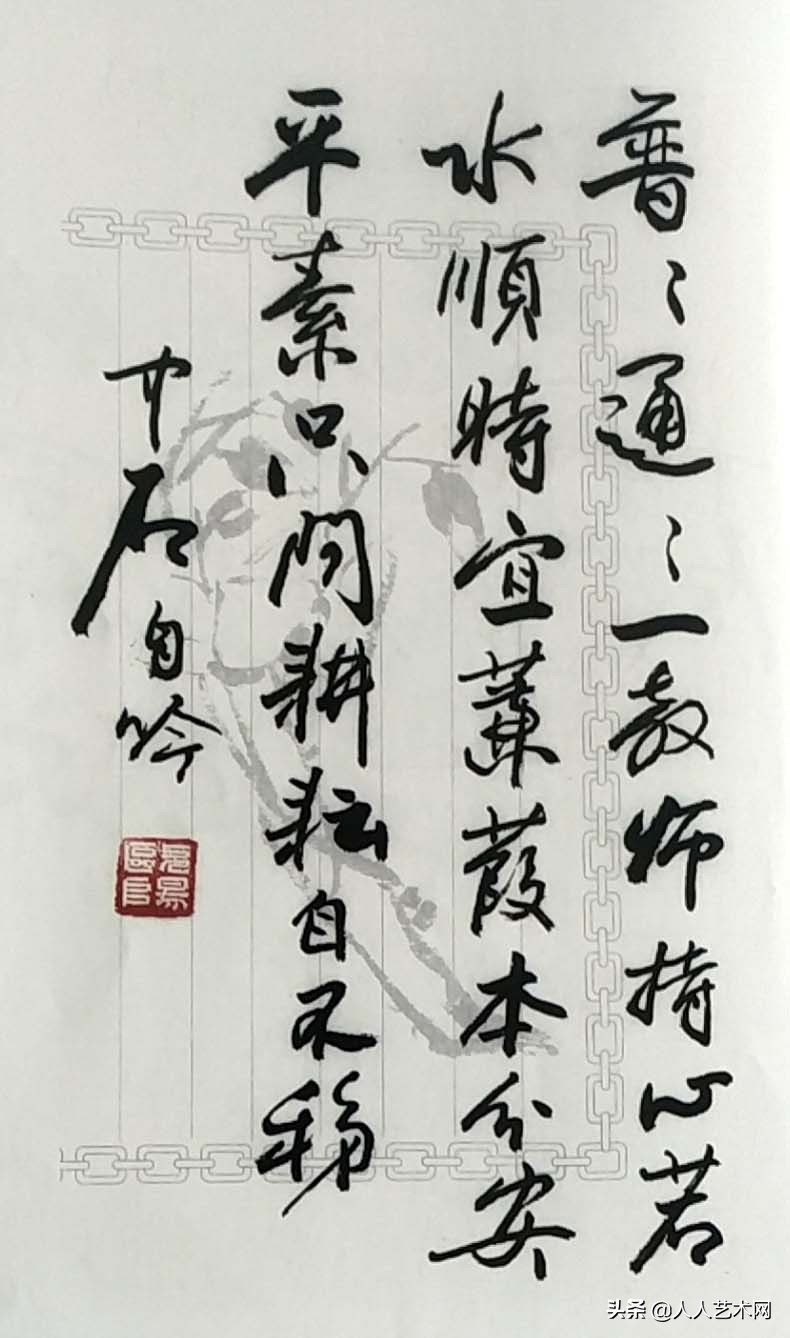 普〻通〻一教师持心若
水順時宜蒹葭本分安
平素只问耕耘自不移
石自吟
头条 @人人艺术网